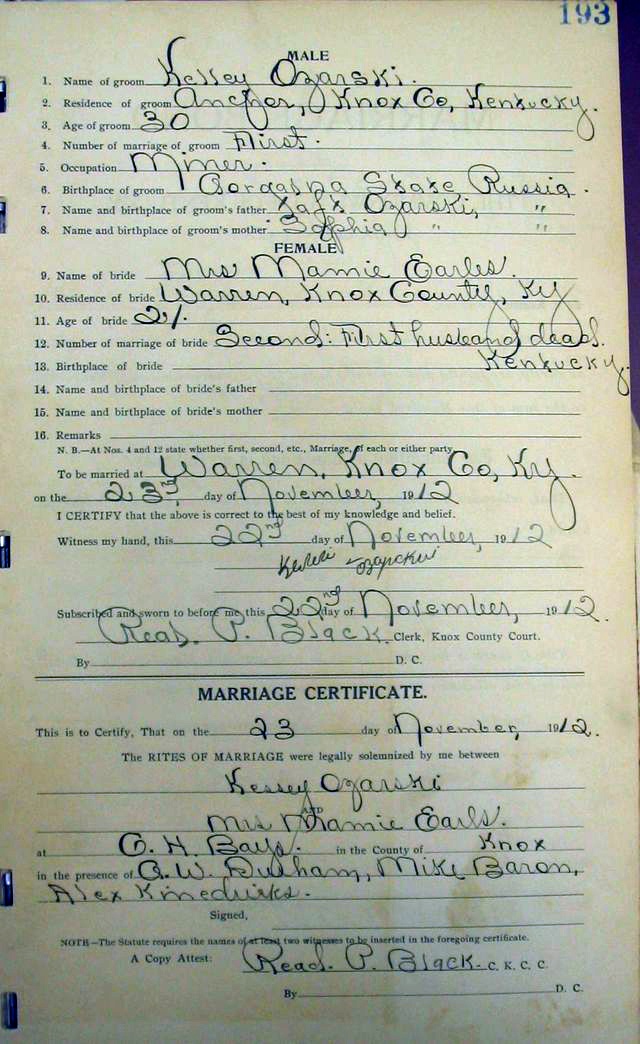 193
MALE
1. Name of groom Kelley Ozarski.
2. Residence of groom Ancher, Knox Co, Kentucky.
3. Age of groom 30
4. Number of marriage of groom First.
5. Occupation Miner.
6. Birthplace of groom State Russia.
7. Name and birthplace of groom's father Ozarski, "
8. Name and birthplace of groom's mother Sophia " "
FEMALE
9. Name of bride Mrs Mamie Earles.
10. Residence of bride Warren, Knox County, Ky
11. Age of bride 21.
12. Number of marriage of bride Second: First husband dead.
13. Birthplace of bride Kentucky.
14. Name and birthplace of bride's father
15. Name and birthplace of bride's mother
16. Remarks
N. B.—At Nos. 4 and 12 state whether first, second, etc., Marriage, of each or either party
To be married at Warren, Knox Co, Ky.
on the 23rd day of November, 1912
I CERTIFY that the above is correct to the best of my knowledge and belief.
Witness my hand, this 22nd day of November, 1912
Subscribed and sworn to before me this 22nd day of November, 1912.
Read. P. Black Clerk, Knox County Court.
By D. C.
MARRIAGE CERTIFICATE.
This is to Certify, That on the 23 day of November, 1912.
The RITES OF MARRIAGE were legally solemnized by me between
Kessey Ozarski
AND
Mrs Mamie Earls.
at G. H. Bays. in the County of Knox
in the presence of A. W. Durham, Mike Baron,
Alex
Signed,
NOTE—The Statute requires the names of at least two witnesses to be inserted in the foregoing certificate.
A Copy Attest: Read. P. Black. C. K. C. C.
By D. C.